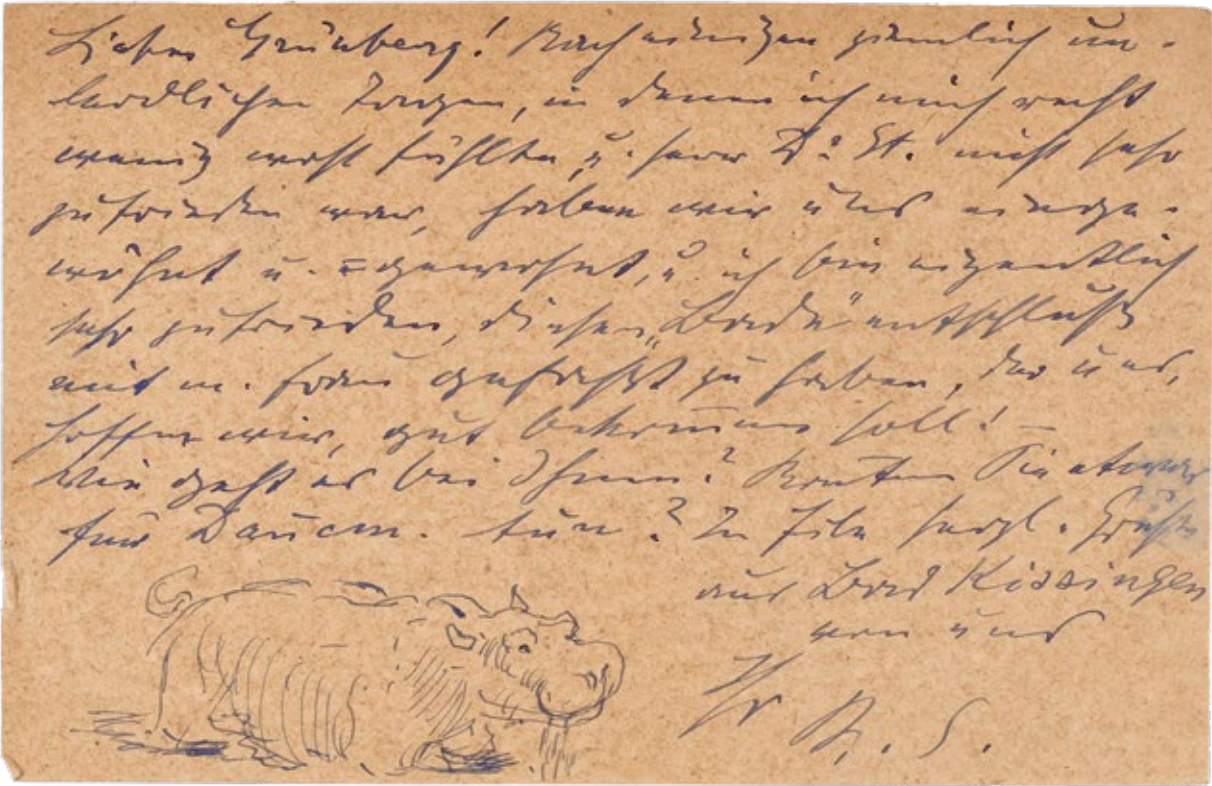 Lieber Grünberg! Nach einigen ziemlich un-
leidlichen Tagen, in denen ich mich recht
wenig wohl fühlte, u. Herr Dr. St. nicht sehr
zufrieden war, haben wir uns einge-
wöhnt u. gewohnt, u. ich bin eigentlich
sehr zufrieden, diesen „Bade"entschluß
mit m. Frau gefaßt zu haben, der uns,
hoffen wir, gut bekommen soll! –
Wie geht es bei Ihnen? Konnten Sie etwas
für tun? In Eile herzl. Grüße
aus Bad Kissingen
von uns
Ihr R. S.